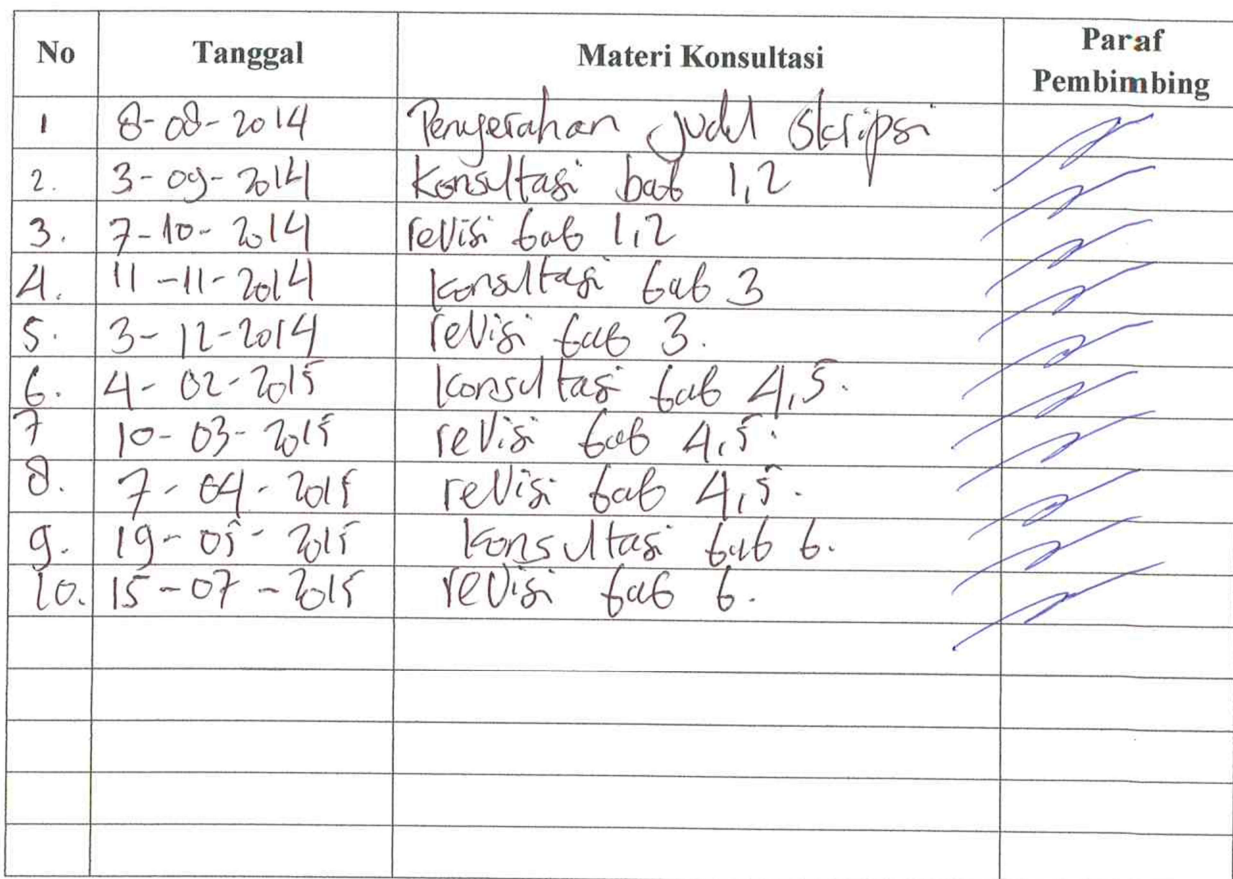 No Tanggal Materi Konsultasi Paraf Pembimbing
1 8-08-2014 Penyerahan judul Skripsi
2. 3-09-2014 Konsultasi bab 1,2
3. 7-10-2014 revisi bab 1,2
4. 11-11-2014 konsultasi bab 3
5. 3-12-2014 revisi bab 3.
6. 4-02-2015 konsultasi bab 4,5.
7 10-03-2015 revisi bab 4,5.
8. 7-04-2015 revisi bab 4,5.
9. 19-05-2015 konsultasi bab 6.
10. 15-07-2015 revisi bab 6.